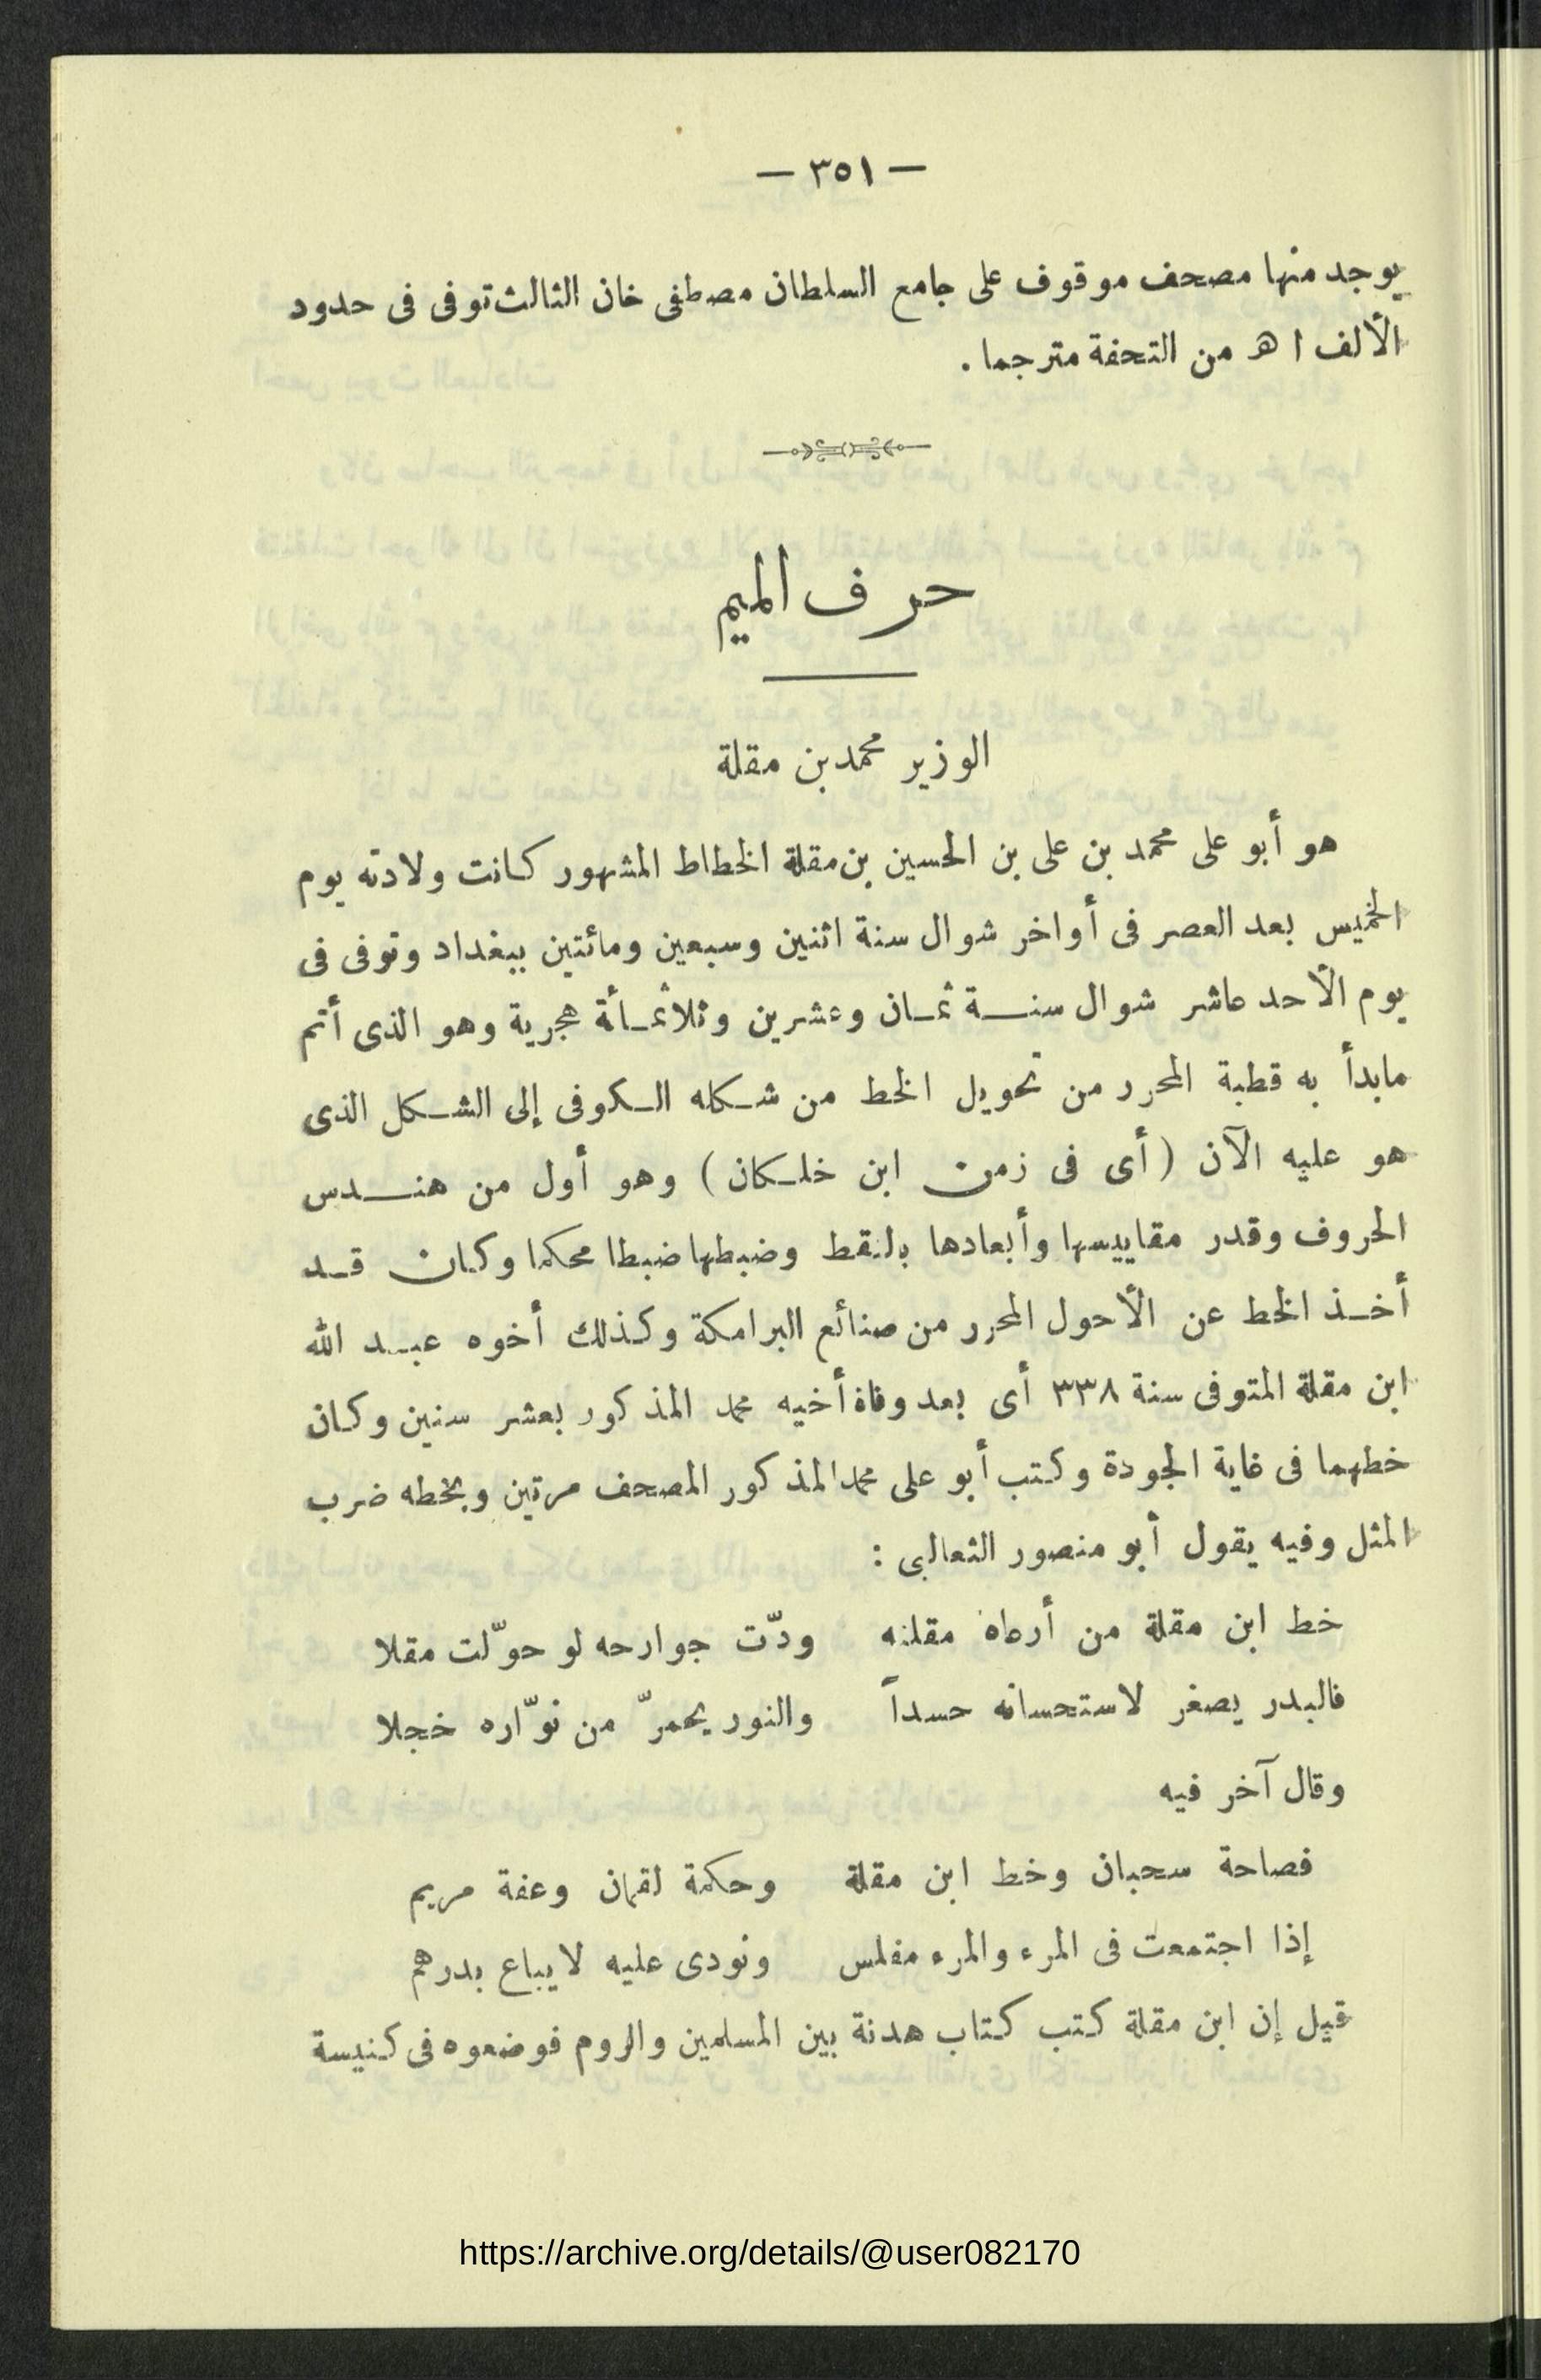 — ٣٥١ —
يوجد منها مصحف موقوف على جامع السلطان مصطفى خان الثالث توفى فى حدود
الألف ا ه من التحفة مترجما .
حرف الميم
الوزير محمد بن مقلة
هو أبو على محمد بن على بن الحسين بن مقلة الخطاط المشهور كانت ولادته يوم
الخميس بعد العصر فى أواخر شوال سنة اثنين وسبعين ومائتين ببغداد وتوفى فى
يوم الأحد عاشر شوال سنة ثمان وعشرين وثلاثمأة هجرية وهو الذى أتم
مابدأ به قطبة المحرر من تحويل الخط من شكله الكوفى إلى الشكل الذى
هو عليه الآن ( أى فى زمن ابن خلكان ) وهو أول من هندس
الحروف وقدر مقاييسها وأبعادها بالنقط وضبطها ضبطا محكما وكان قد
أخذ الخط عن الأحول المحرر من صنائع البرامكة وكذلك أخوه عبد الله
ابن مقلة المتوفى سنة ٣٣٨ أى بعد وفاة أخيه محمد المذكور بعشر سنين وكان
خطهما فى غاية الجودة وكتب أبو على محمد المذكور المصحف مرتين وبخطه ضرب
المثل وفيه يقول أبو منصور الثعالبى :
خط ابن مقلة من أرعاه مقلته ودّت جوارحه لو حوّلت مقلا
فالبدر يصفر لاستحسانه حسداً والنور يحمرّ من نوّاره خجلا
وقال آخر فيه
فصاحة سحبان وخط ابن مقلة وحكمة لقمان وعفة مريم
إذا اجتمعت فى المرء والمرء مفلس ونودى عليه لا يباع بدرهم
قيل إن ابن مقلة كتب كتاب هدنة بين المسلمين والروم فوضعوه فى كنيسة
https://archive.org/details/@user082170